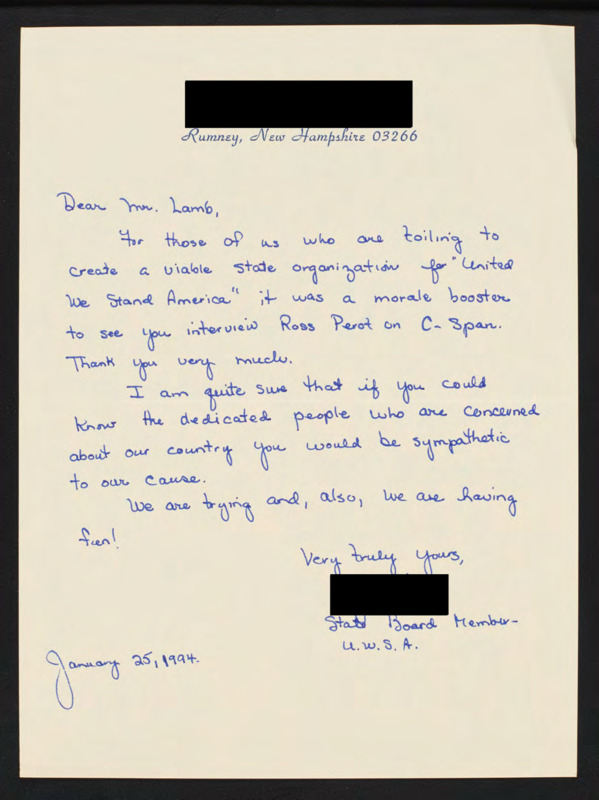 Rumney, New Hampshire 03266
Dear Mr. Lamb,
For those of us who are toiling to
create a viable state organization for "United
We Stand America" it was a morale booster
to see you interview Ross Perot on C-Span.
Thank you very much.
I am quite sure that if you could
know the dedicated people who are concerned
about our country you would be sympathetic
to our cause.
We are trying and, also, we are having
fun!
Very truly yours,
State Board Member-
U.W.S.A.
January 25, 1994.